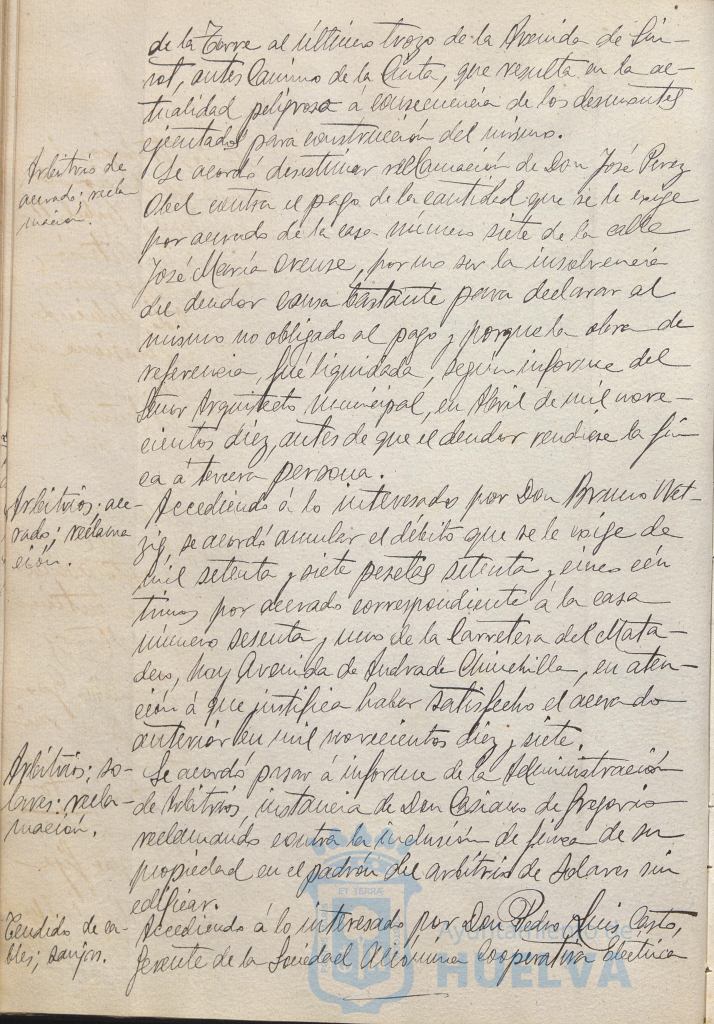 de la Torre al último trozo de la Avenida de Sun-
not, antes Camino de la Cinta, que resulta en la ac-
tualidad peligroso á consecuencia de los desmontes
ejecutados para construcción del mismo.
Arbitrios de
acerado; recla-
mación.
Se acordó desestimar reclamación de Don José Perez
Abel contra el pago de la cantidad que se le exige
por acerado de la casa número siete de la calle
José María Orense, por no ser la insolvencia
del deudor causa bastante para declarar al
mismo no obligado al pago y porque la obra de
referencia, fué liquidada, según informe del
Señor Arquitecto Municipal, en Abril de mil nove-
cientos diez, antes de que el deudor vendiese la fin-
ca á tercera persona.
Arbitrios; ace-
rado; reclama
ción.
Accediendo á lo interesado por Don Bruno Wet-
zig, se acordó anular el débito que se le exige de
mil setenta y siete pesetas setenta y cinco cén
timos por acerado correspondiente á la casa
número sesenta y uno de la Carretera del Mata-
dero, hoy Avenida de Andrade Chinchilla, en aten-
ción á que justifica haber satisfecho el acerado
anterior en mil novecientos diez y siete.
Arbitrios; so-
lares: recla-
mación.
Se acordó pasar á informe de la Administración
de Arbitrios, instancia de Don Casiano de Gregorio
reclamando contra la inclusión de finca de su
propiedad en el padrón del arbitrio de Solares sin
edificar.
Tendido de ca-
bles; zanjas.
Accediendo á lo interesado por Don Pedro Luis Casto,
Gerente de la Sociedad Anónima Cooperativa Eléctrica
ET TERRÆ
Ayuntamiento de
HUELVA